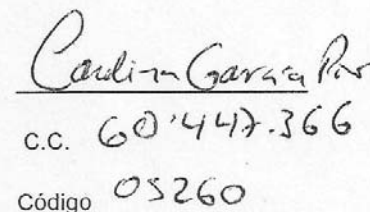 Carolina Garcia Par
C.C. 60'447.366
Código 05260